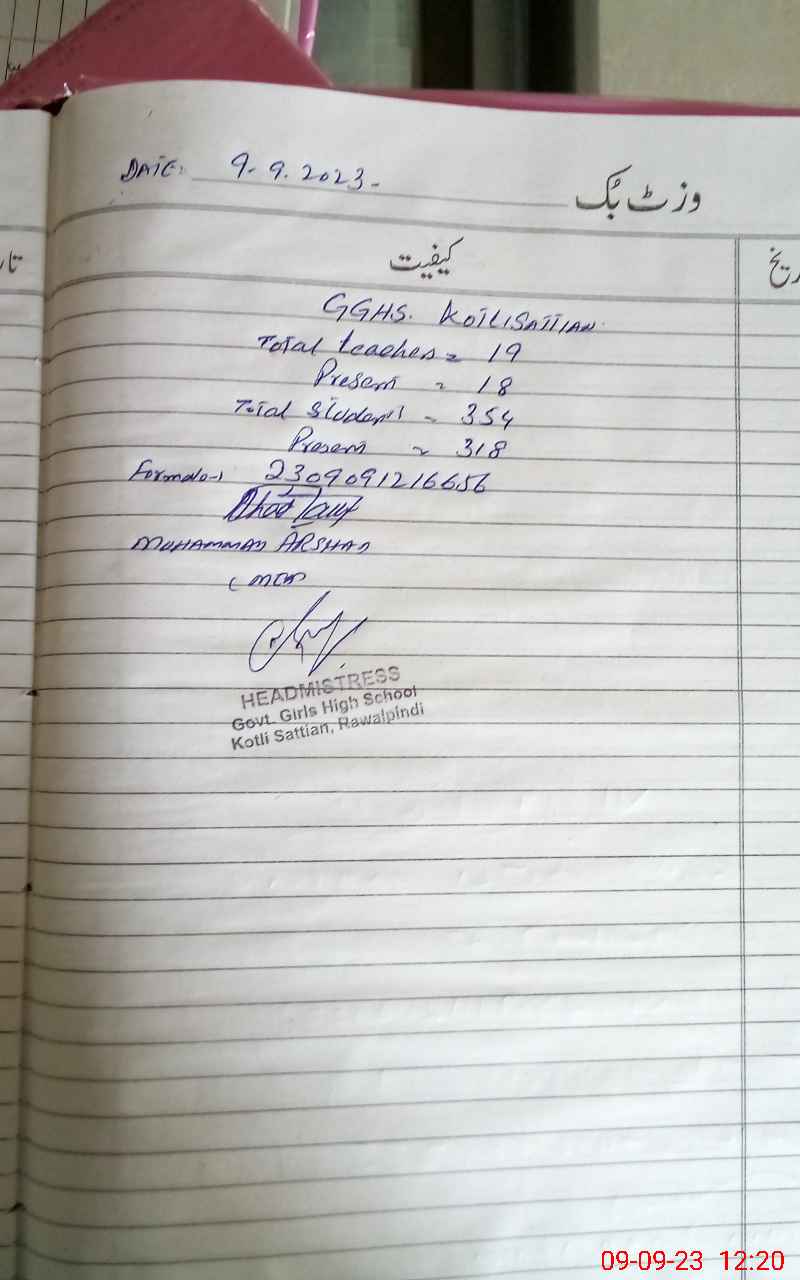 DATE: 9.9.2023-
وزٹ بُک
تار
کیفیت
ریخ
GGHS. KOTLISATTIAN.
Total teaches = 19
Present = 18
Total Students = 354
Present = 318
2309091216656
MUHAMMAD ARSHAD
HEADMISTRESS
Govt. Girls High School
Kotli Sattian, Rawalpindi
09-09-23 12:20